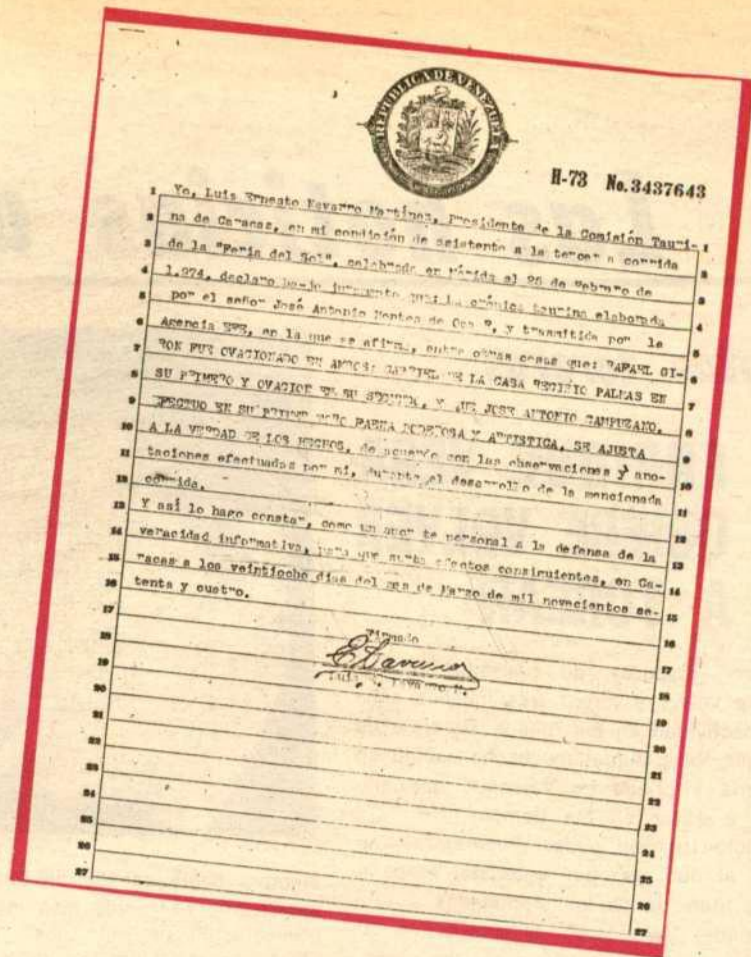 REPUBLICA DE VENEZUELA
H-73 No. 3437643
1 Yo, Luis Ernesto Navarro Martínez, Presidente de la Comisión Tauri- 1
2 na de Caracas, en mi condición de asistente a la tercera corrida 2
3 de la "Feria del Sol", celebrada en Mérida el 25 de Febrero de 3
4 1.974, declaro bajo juramento que: La crónica taurina elaborada 4
5 por el señor José Antonio Montes de Oca P, y transmitida por la 5
6 Agencia EFE, en la que se afirma, entre otras cosas que: RAFAEL GI- 6
7 RON FUE OVACIONADO EN AMBOS; GABRIEL DE LA CASA RECIBIO PALMAS EN 7
8 SU PRIMERO Y OVACION EN SU SEGUNDO, Y QUE JOSE ANTONIO CAMPUZANO, 8
9 EFECTUO EN SU PRIMER TORO FAENA PODEROSA Y ARTISTICA, SE AJUSTA 9
10 A LA VERDAD DE LOS HECHOS, de acuerdo con las observaciones y ano- 10
11 taciones efectuadas por mi, durante el desarrollo de la mencionada 11
12 corrida. 12
13 Y así lo hago constar, como un aporte personal a la defensa de la 13
14 veracidad informativa, para que surta efectos consiguientes, en Ca- 14
15 racas a los veintiocho días del mes de Marzo de mil novecientos se- 15
16 tenta y cuatro. 16
17 17
18 Firmado 18
19 19
20 Luis E. Navarro M. 20
21 21
22 22
23 23
24 24
25 25
26 26
27 27